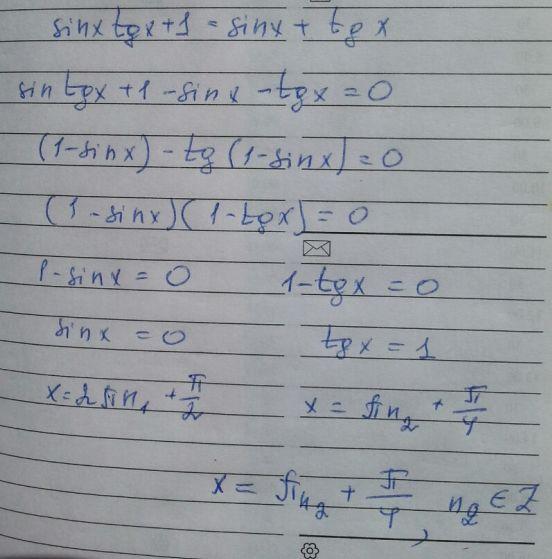 sinx tgx+1 = sinx + tg x
sin tgx +1 -sinx -tgx = 0
(1-sinx) - tg (1-sinx) = 0
(1 -sinx)(1-tgx) = 0
1-sinx = 0 1-tgx = 0
sinx = 0 tgx = 1
x=2πn₁ + π/2 x = πn₂ + π/4
x = πn₂ + π/4, n₂ ∈ Z